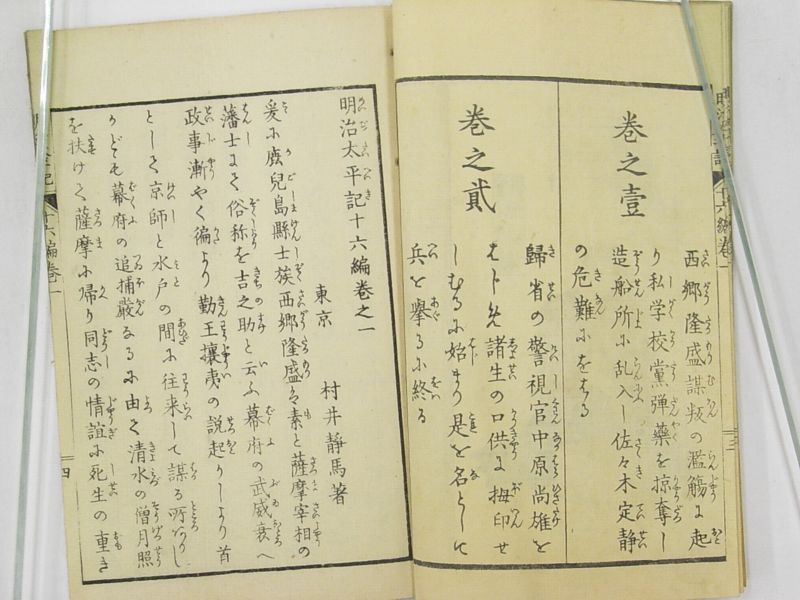 卷之壹
西郷隆盛謀叛の濫觴に起
り私学校黨弾藥を掠奪し
造船所に乱入し佐々木定静
の危難にをはる
卷之貳
歸省の警視官中原尚雄を
はじめ諸生の口供に拇印せ
しむるに始まり是を名として
兵を擧るに終る
明治太平記十六編卷之一
東京 村井静馬著
爰に鹿児島縣士族西郷隆盛ハ素と薩摩宰相の
藩士にて俗称を吉之助と云ふ幕府の武威衰へ
政事漸やく徧より勤王攘夷の説起りしより首
として京師と水戸の間に往来して謀る所ありし
かども幕府の追捕嚴なるに由く清水の僧月照
を扶けて薩摩に帰り同志の情誼に死生の重き
十六編卷一
四